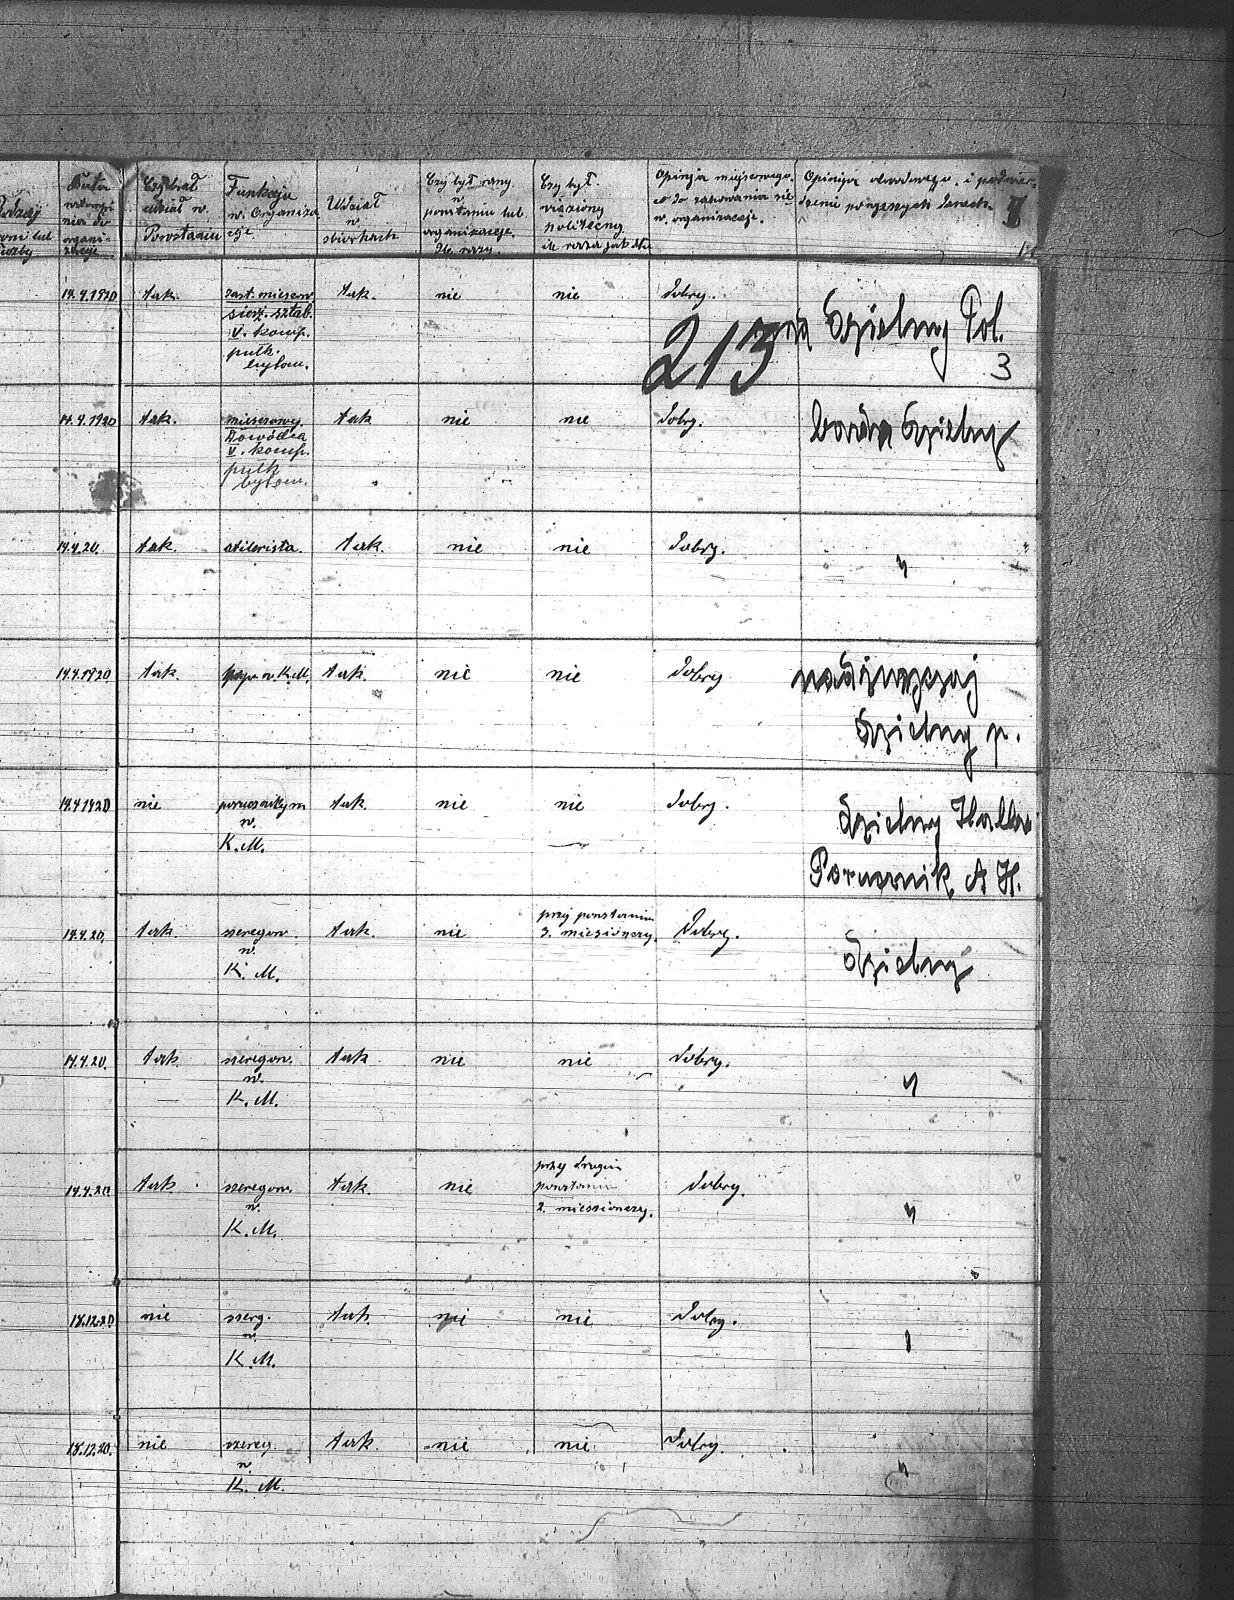 Data
organi-
Czy brał
udział w.
Powstaniu
Funkcja
w. Organiza
cje.
Udział
w.
zbiórkach
Czy był rany.
w
powstaniu lub.
organizacje.
Ile razy.
Czy był.
więziony
polityczny
ile raza jak dłu
Opinja miejscowego.
co do zachowania się
w. organizacje.
Opinja obwodowego. i
dzenie powyższych danych.
14.4.1920 tak. zast. miejscow. tak. nie nie dobry. Dzielny Pol.
sierż. sztab.
V. komp.
pułk.
bytom.
213
3
14.4.1920 tak. miejscowy tak nie nie dobry. bardzo Dzielny
Dowódca
V. komp.
pułk
bytom.
14.4.20. tak. tak. nie nie dobry. "
14.4.1920 tak w. K.M. tak. nie nie dobry nadzwyczaj
Dzielny p.
14.4.1920 nie tak nie nie dobry. dzielny
w.
K.M.
Porucznik A H.
14.4.20. tak. szeregow. tak. nie przy powstaniu dobry. dzielny
w. 3. miesięncy.
K.M.
14.4.20. tak szeregow. tak nie nie dobry. "
w.
K.M.
14.4.20 tak. szeregow. tak. nie przy drugim dobry. "
w. powstaniu
K.M. 2. miesięncy.
18.12.20 nie szerg. tak nie nie dobry.
w.
K.M.
18.12.20. nie szereg. tak nie nie dobry. "
w.
K.M.